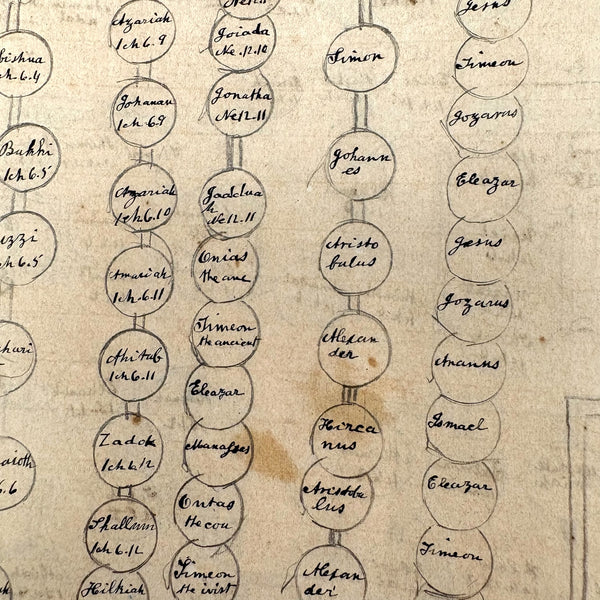 bishua
1ch6.4
Bukki
1ch6.5
zzi
ch6.5
hari
aioth
6.6
Azariah
1ch6.9
Johanan
1ch69
Azariah
1ch6.10
Amariah
1ch6.11
Ahitub
1ch6.11
Zadok
1ch6.12
Shallum
1ch6.12
Hilkiah
Joiada
Ne.12.10
Jonatha
Ne12.11
Jaddua
h
Ne12.11
Onias
the anc
Simeon
the ancient
Eleazar
Manasses
Onias
the cou
Simeon
Simon
Johann
es
Aristo
bulus
Alexan
der
Hirca
nus
Aristobu
lus
Alexan
der
Jesus
Simeon
Jozarus
Eleazar
Jesus
Jozarus
Ananus
Ismael
Eleazar
Simeon